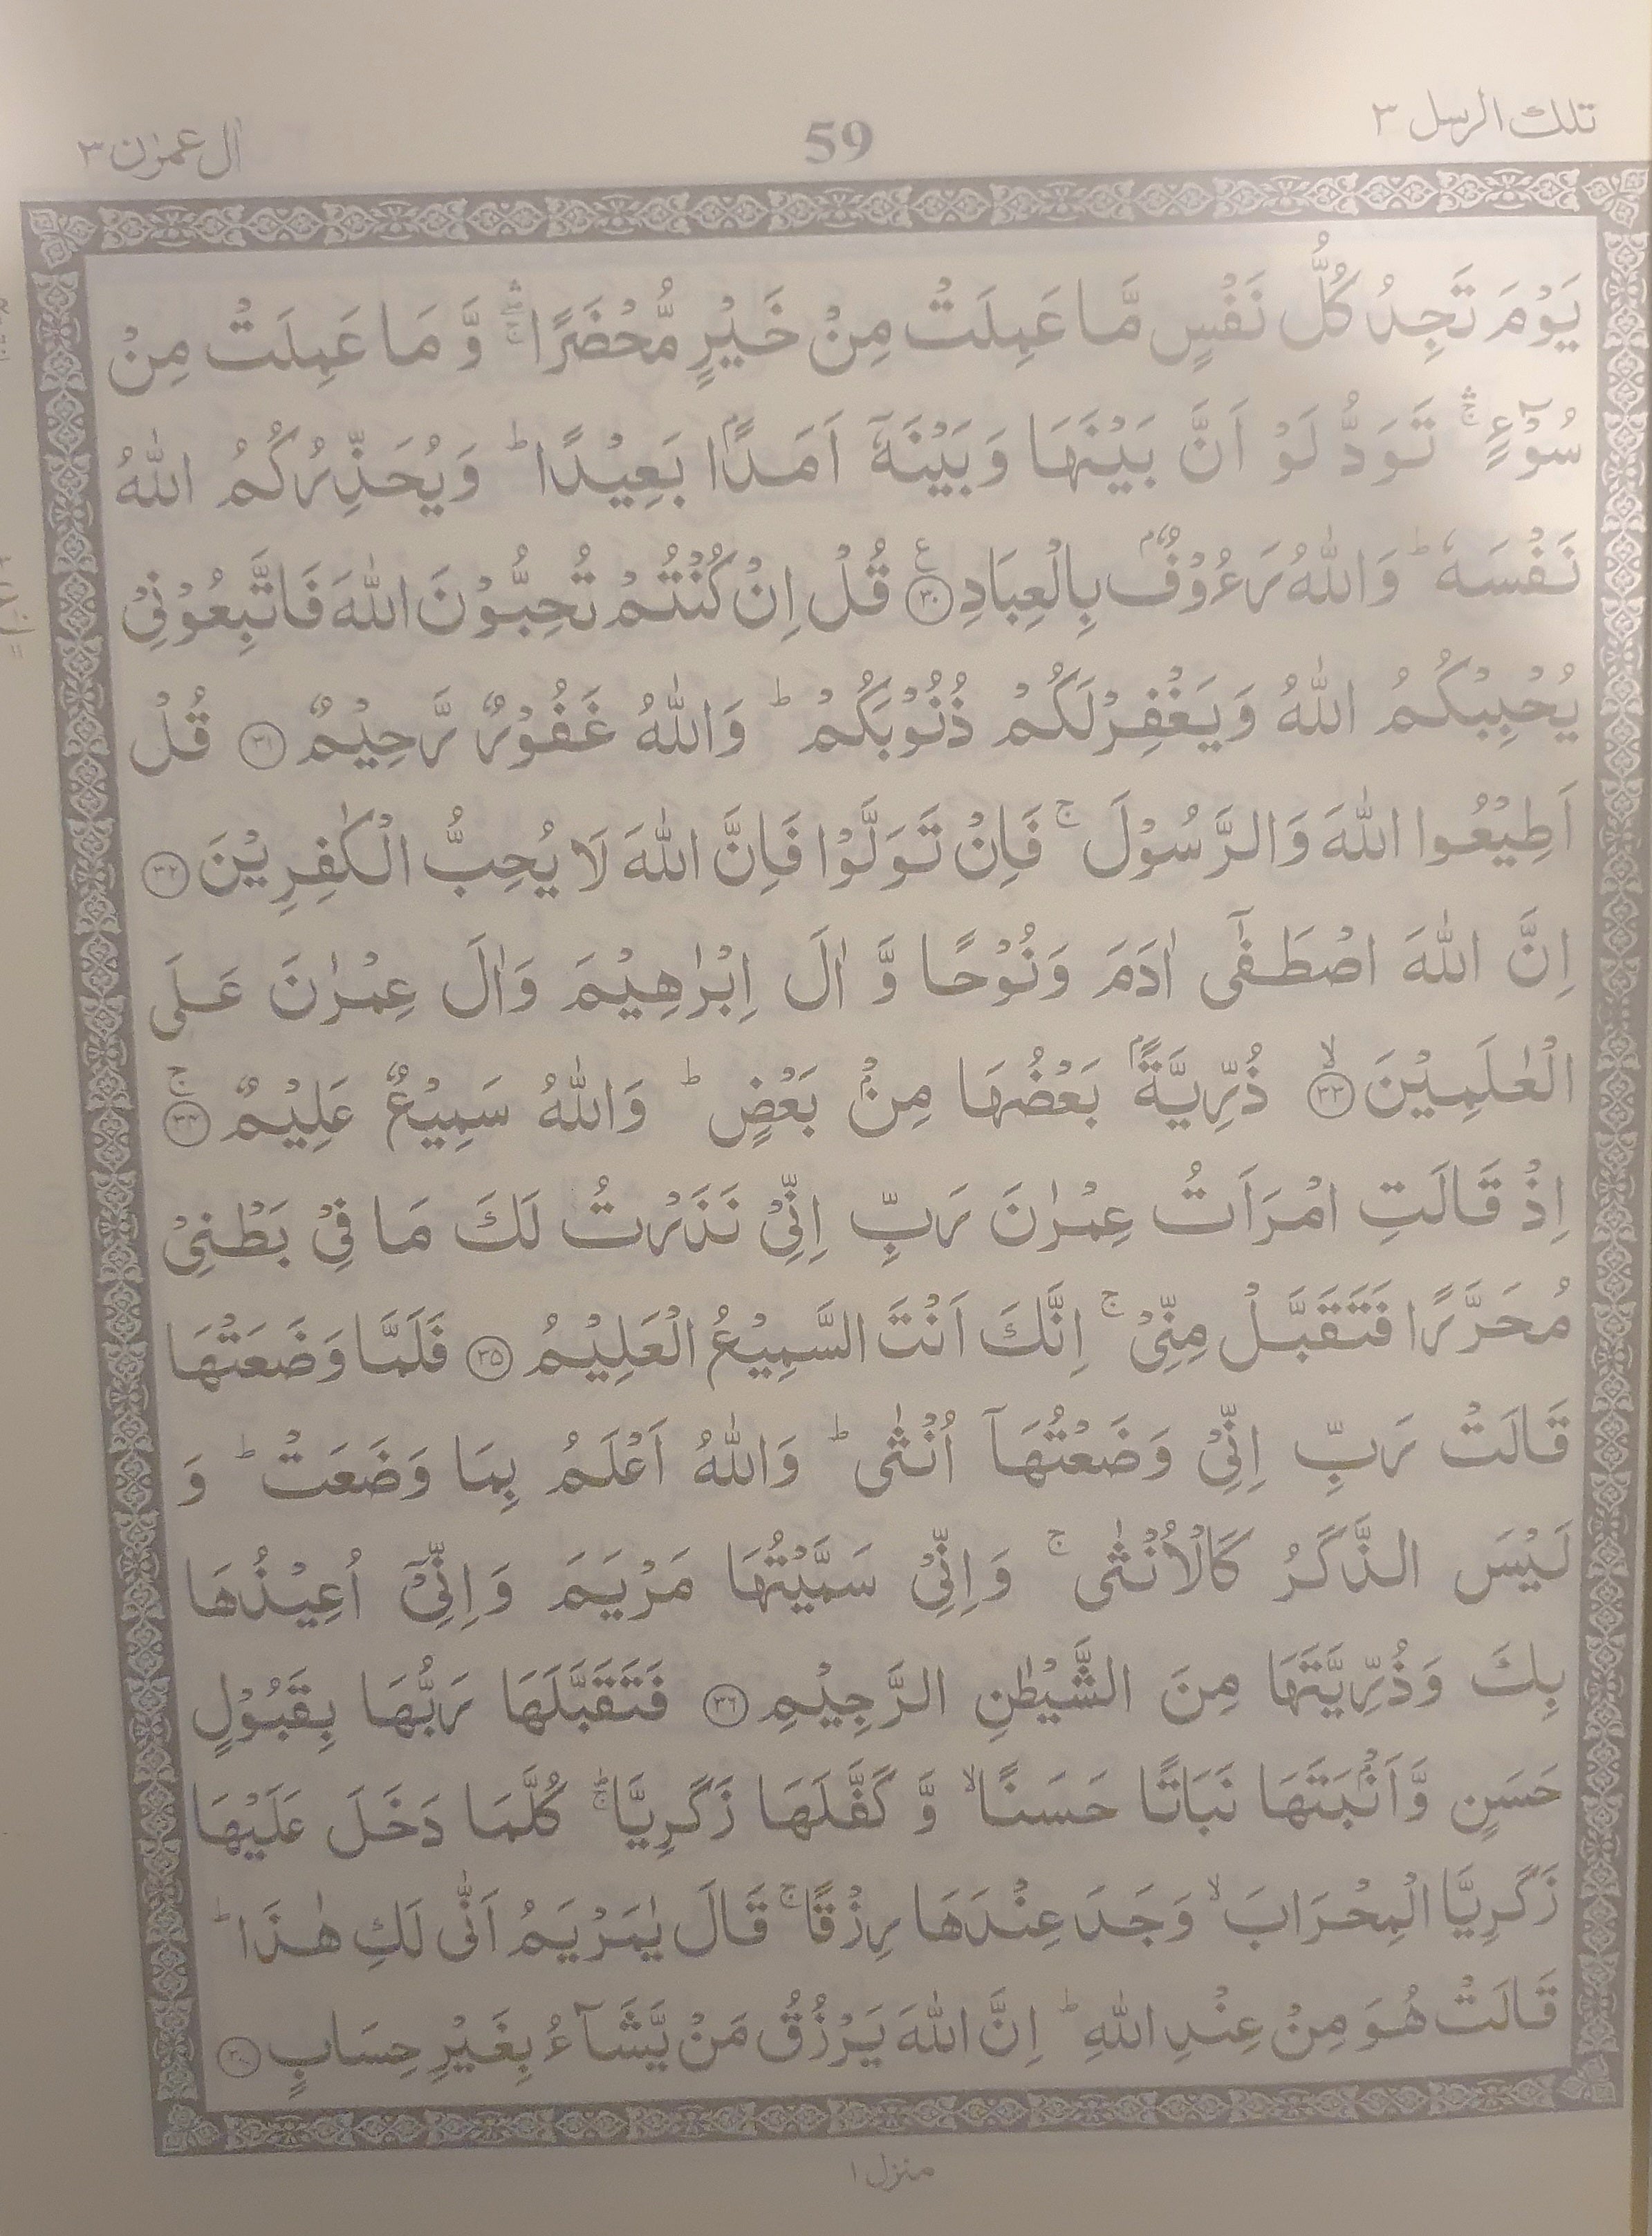 تلك الرسل ٣
59
اٰل عمرٰن ٣
يَوْمَ تَجِدُ كُلُّ نَفْسٍ مَّا عَمِلَتْ مِنْ خَيْرٍ مُّحْضَرًا ۛۚ وَّ مَا عَمِلَتْ مِنْ
سُوْٓءٍ ۛۚ تَوَدُّ لَوْ اَنَّ بَيْنَهَا وَبَيْنَهٗٓ اَمَدًۢا بَعِيْدًا ؕ وَيُحَذِّرُكُمُ اللّٰهُ
نَفْسَهٗ ؕ وَاللّٰهُ رَءُوْفٌۢ بِالْعِبَادِ ﴿۳۰﴾ ع قُلْ اِنْ كُنْتُمْ تُحِبُّوْنَ اللّٰهَ فَاتَّبِعُوْنِيْ
يُحْبِبْكُمُ اللّٰهُ وَيَغْفِرْ لَكُمْ ذُنُوْبَكُمْ ؕ وَاللّٰهُ غَفُوْرٌ رَّحِيْمٌ ﴿۳۱﴾ قُلْ
اَطِيْعُوا اللّٰهَ وَالرَّسُوْلَ ۚ فَاِنْ تَوَلَّوْا فَاِنَّ اللّٰهَ لَا يُحِبُّ الْكٰفِرِيْنَ ﴿۳۲﴾
اِنَّ اللّٰهَ اصْطَفٰٓى اٰدَمَ وَنُوْحًا وَّ اٰلَ اِبْرٰهِيْمَ وَاٰلَ عِمْرٰنَ عَلَى
الْعٰلَمِيْنَ ﴿۳۳﴾ۙ ذُرِّيَّةًۢ بَعْضُهَا مِنْۢ بَعْضٍ ؕ وَاللّٰهُ سَمِيْعٌ عَلِيْمٌ ﴿۳۴﴾ۚ
اِذْ قَالَتِ امْرَاَتُ عِمْرٰنَ رَبِّ اِنِّيْ نَذَرْتُ لَكَ مَا فِيْ بَطْنِيْ
مُحَرَّرًا فَتَقَبَّلْ مِنِّيْ ۚ اِنَّكَ اَنْتَ السَّمِيْعُ الْعَلِيْمُ ﴿۳۵﴾ فَلَمَّا وَضَعَتْهَا
قَالَتْ رَبِّ اِنِّيْ وَضَعْتُهَآ اُنْثٰى ؕ وَاللّٰهُ اَعْلَمُ بِمَا وَضَعَتْ ؕ وَ
لَيْسَ الذَّكَرُ كَالْاُنْثٰى ۚ وَاِنِّيْ سَمَّيْتُهَا مَرْيَمَ وَاِنِّيْٓ اُعِيْذُهَا
بِكَ وَذُرِّيَّتَهَا مِنَ الشَّيْطٰنِ الرَّجِيْمِ ﴿۳۶﴾ فَتَقَبَّلَهَا رَبُّهَا بِقَبُوْلٍ
حَسَنٍ وَّاَنْۢبَتَهَا نَبَاتًا حَسَنًا ۙ وَّ كَفَّلَهَا زَكَرِيَّا ؕۚ كُلَّمَا دَخَلَ عَلَيْهَا
زَكَرِيَّا الْمِحْرَابَ ۙ وَجَدَ عِنْدَهَا رِزْقًا ۚ قَالَ يٰمَرْيَمُ اَنّٰى لَكِ هٰذَا ؕ
قَالَتْ هُوَ مِنْ عِنْدِ اللّٰهِ ؕ اِنَّ اللّٰهَ يَرْزُقُ مَنْ يَّشَآءُ بِغَيْرِ حِسَابٍ ﴿۳۷﴾
منزل ١